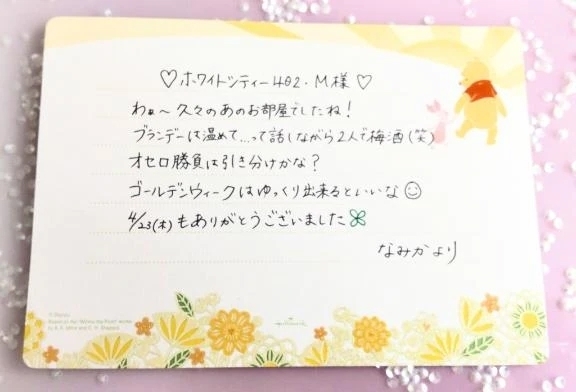 ♡ホワイトシティー402・M様♡
わぁ~久々のあのお部屋でしたね!
ブランデーは温めて...って話しながら2人で梅酒(笑)
オセロ勝負は引き分けかな?
ゴールデンウィークはゆっくり出来るといいな☺
4/23(木)もありがとうございました🍀
なみかより
© Disney
Based on the "Winnie the Pooh" works
by A. A. Milne and E. H. Shepard
Hallmark